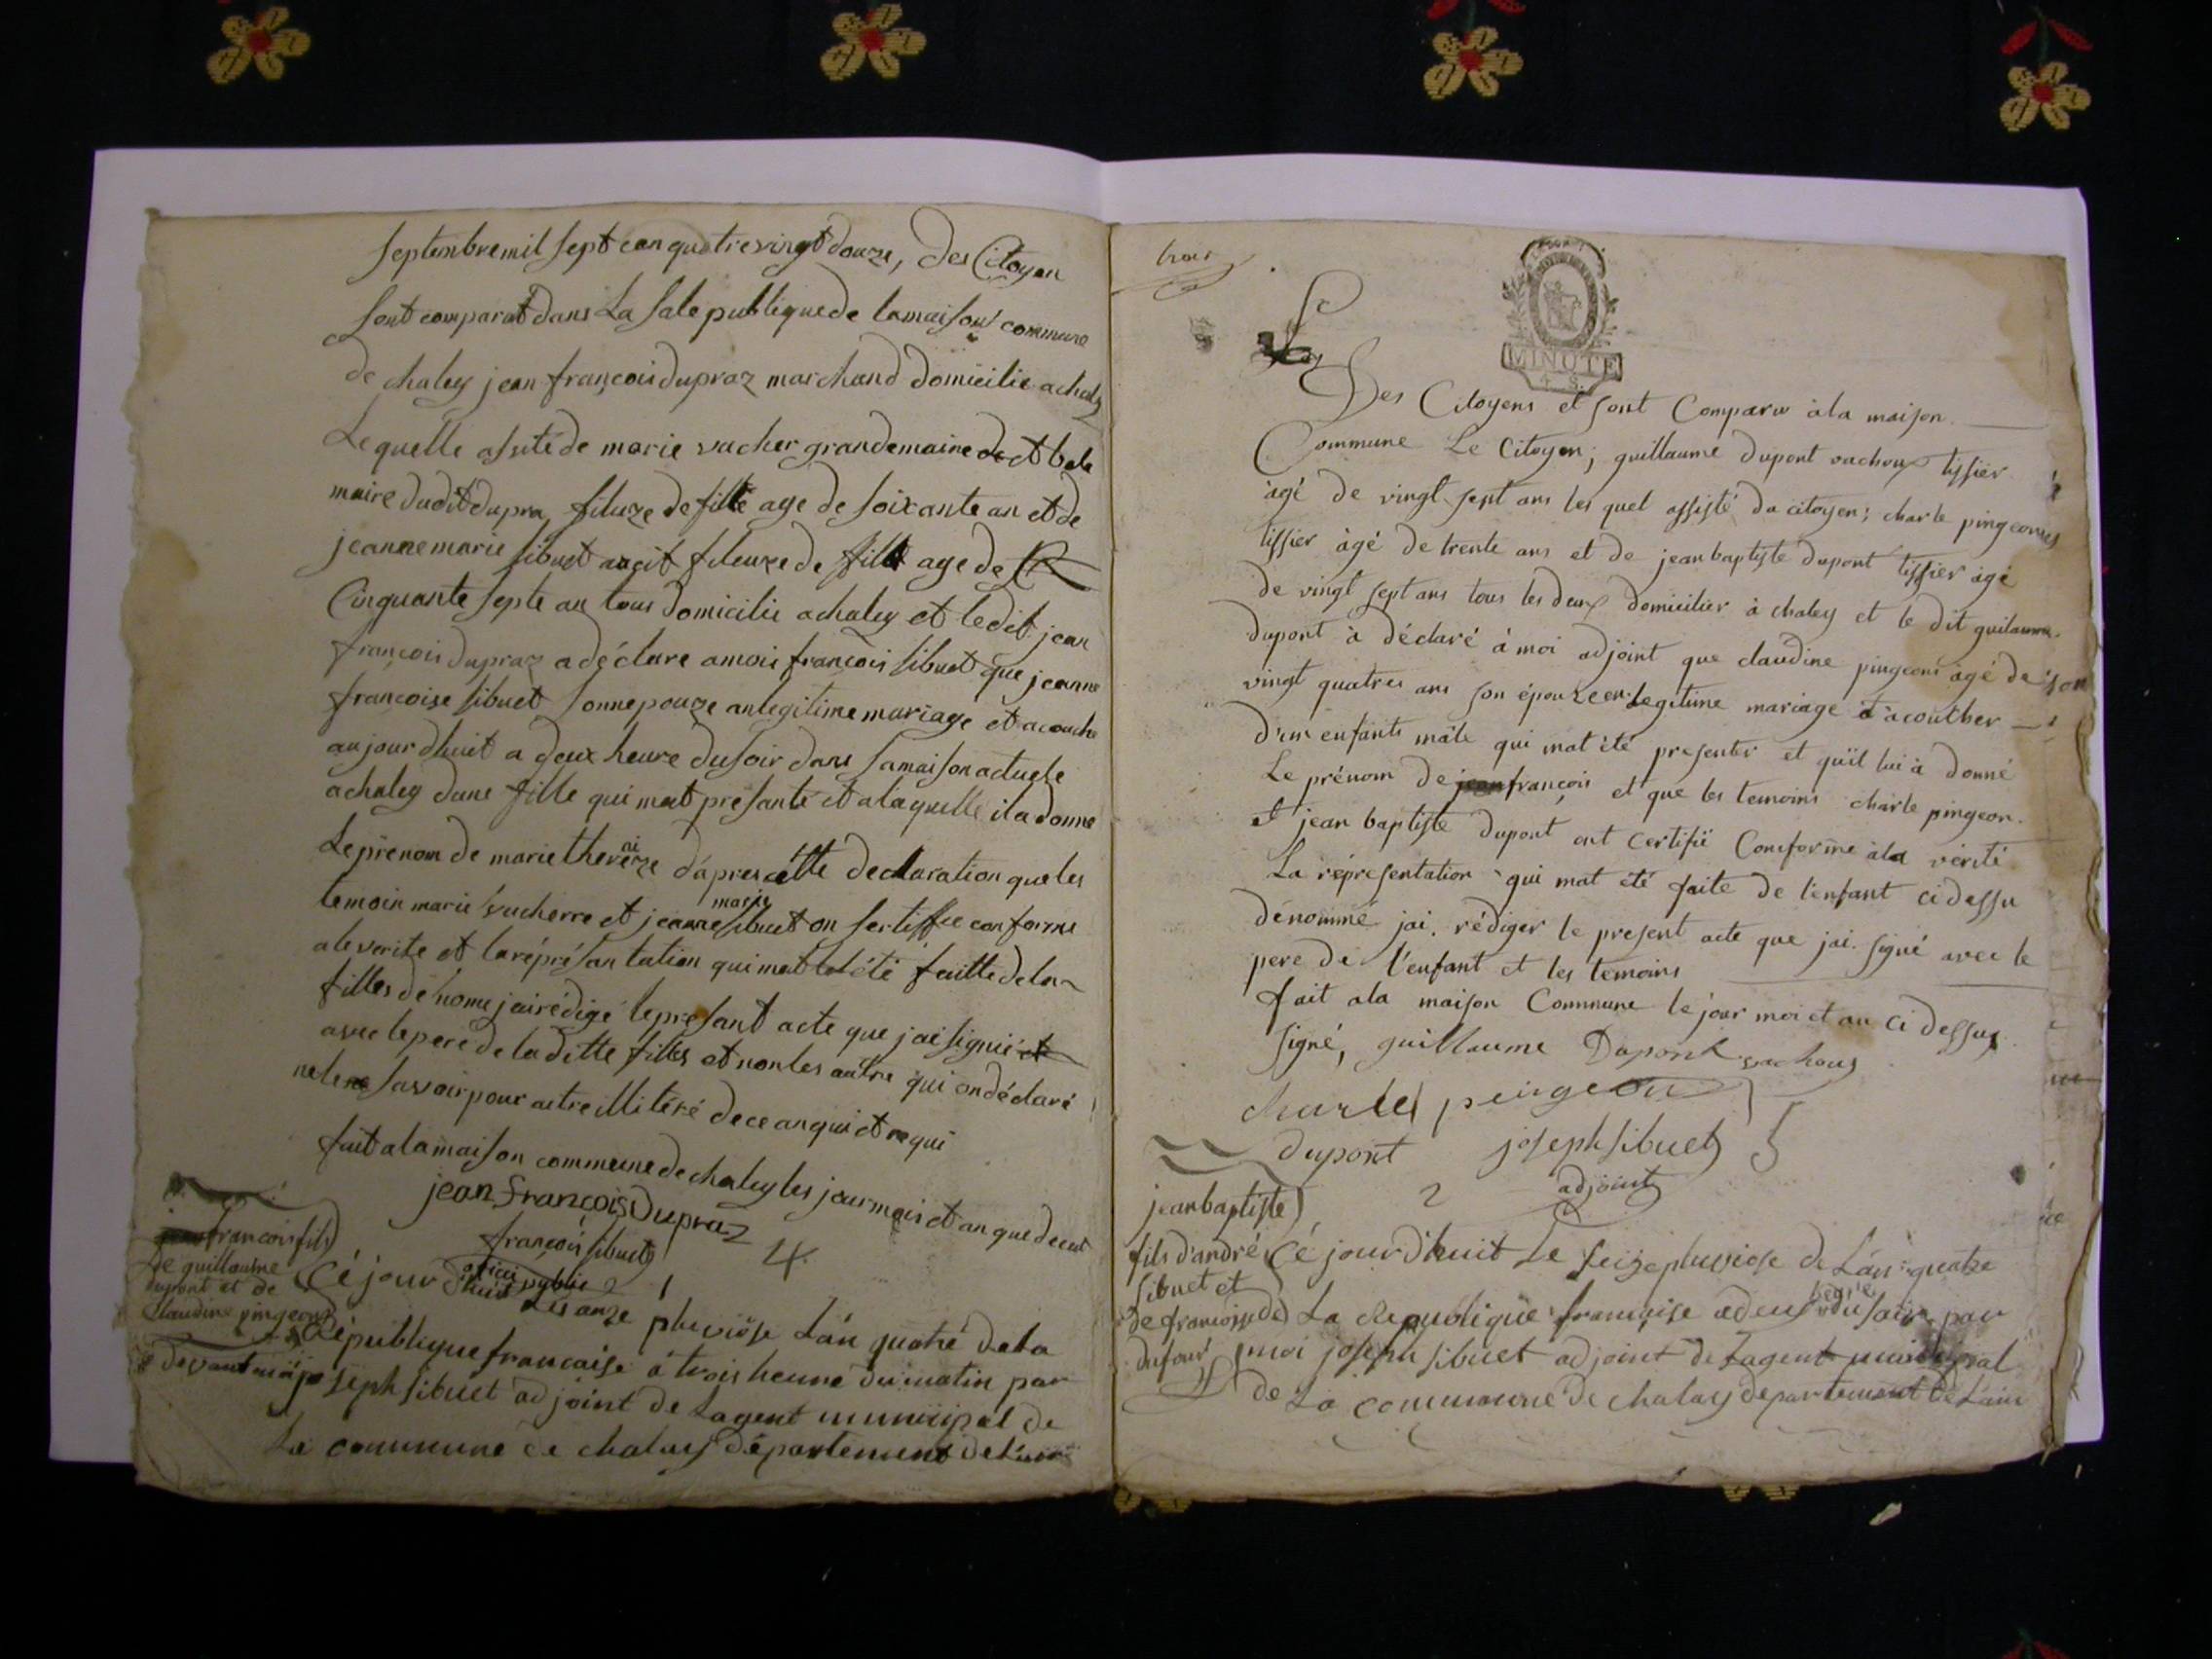 septembre mil sept cen quatrevingt douze, des Citoyen
sont comparot dans La sale publique de lamaison commune
de chaley jean françois dupraz marchand domicilie a chaley
Lequelle assite de marie vacher grandemaire de et bele
maire dudit dupra, fileuze de fille age de soixante an et de
jeannemarie sibuet aucit fileuze de fille age de
Cinquante septe an tous domicilie a chaley et ledit jean
françois dupraz a déclare amois françois sibuet que jeanne
françoise sibuet sonnepouze an legitime mariage et acouche
aujourdhuit a deux heure dusoir dans samaison actuele
a chaley dune fille qui mat présanté et alaquelle ila donne
Leprénom de marie therèze dapres cette declaration que les
ai
temoin marie vacherre et jeanne sibuet on sertiffie conforme
marie
ale verite et la réprésantation qui mat été faitte dela
filles dénome jai rédigé le présant acte que jai signié et
avec le pere de la ditte filles et non les autre qui on déclaré
ne le savoir pour aitre illitéré de ce anqui et requi
fait a la maison commune de chaley les jour mois et an que decut
jean françois Dupraz
françois sibuet
officié publie
françois fils
de guillaume
dupont et de
Claudine pingeon
Cé jour dhuit Les onze pluviôse Lán quatre dela
République francaise á trois heure du matin par
devant moi joseph sibuet adjoint de Lagent municipal de
La commune de chaley département de Lain
trois
MINUTE
4 S.
Des Citoyens et sont Comparu àla maison
Commune Le Citoyen; guillaume dupont vachoux tissier
àgé de vingt sept ans les quel assisté du citoyen; charle pingeon
tissier àgé de trente ans et de jean baptiste dupont tissier àgé
de vingt sept ans tous les deux domicilier à chaley et le dit guilaume
dupont à déclaré à moi adjoint que claudine pingeon àgé de
vingt quatres ans son épouze en Legitime mariage à acoucher
d'un enfants mâle qui mat été presenter et quil lui à donné
Le prénom de jean françois et que les temoins charle pingeon
et jean baptiste dupont ont certifié Comforme àla vérité
La répresentation qui mat été faite de l'enfant ci dessu
dénommé jai rédiger le present acte que jai signé avec le
pere de l'enfant et les temoins
fait ala maison Commune le jour moi et an ci dessus
signé, guillaume Dupont vachoux
charles pingeon
dupont joseph sibuet
adjoint
jean baptiste
fils d'andré
sibuet et
de françoise
dufour
Cé jour d'huit Le seize pluviose de Lan quatre
La Republique française a deus du soir par
moi joseph sibuet adjoint de Lagent municipal
de La commune de chaley departement de Lain